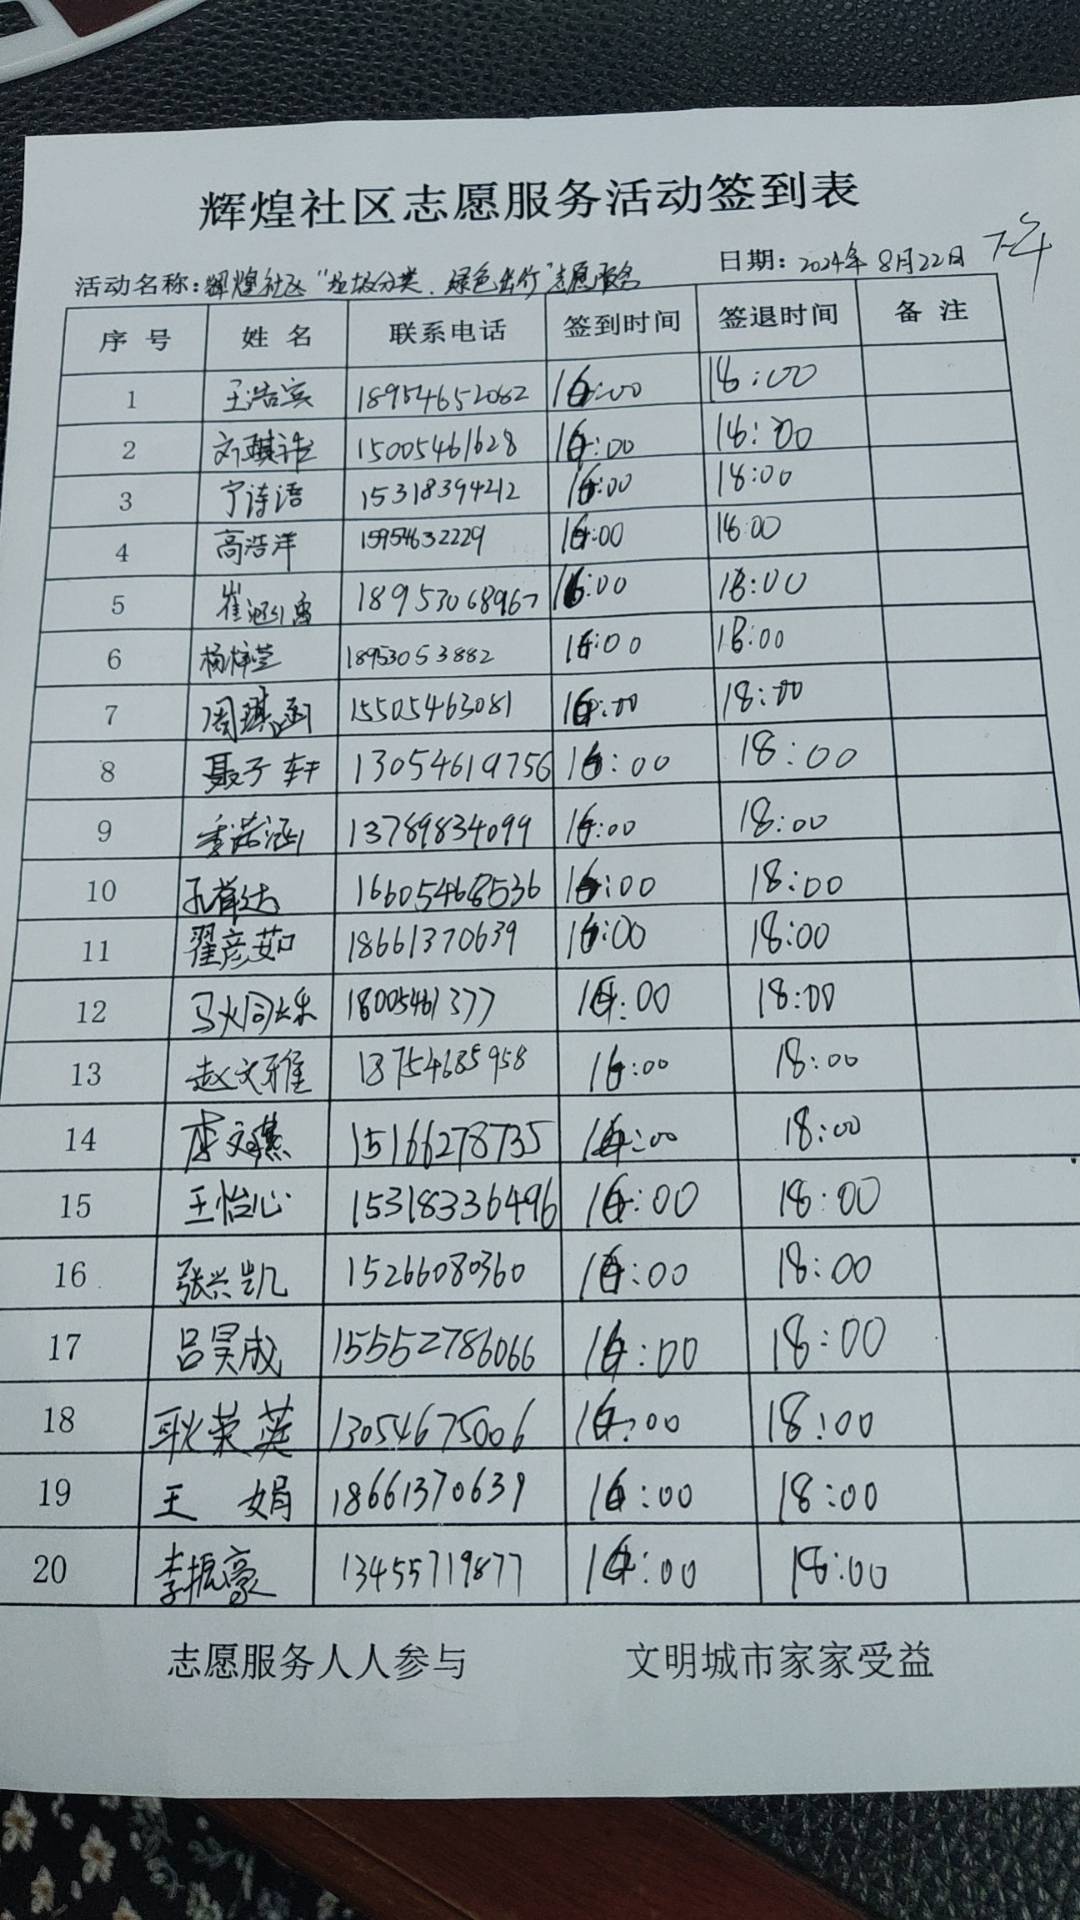 辉煌社区志愿服务活动签到表
活动名称:辉煌社区“垃圾分类、绿色出行”志愿服务 日期:2024年8月22日 下午
序号 姓名 联系电话 签到时间 签退时间 备注
1 王浩宾 18954652082 16:00 18:00
2 刘琪 15005461628 16:00 18:00
3 宁诗语 15318394212 16:00 18:00
4 高浩洋 15954632229 16:00 18:00
5 崔涵 18953068967 16:00 18:00
6 杨梓芸 18953053882 16:00 18:00
7 周琪涵 15505463081 16:00 18:00
8 聂子轩 13054619756 16:00 18:00
9 李诺涵 13789834099 16:00 18:00
10 16605468536 16:00 18:00
11 翟彦茹 18661370639 16:00 18:00
12 18005461377 16:00 18:00
13 赵文雅 18754685958 16:00 18:00
14 李文 15166278735 16:00 18:00
15 王怡心 15318336496 16:00 18:00
16 张兴凯 15266080360 16:00 18:00
17 吕昊成 15552786066 16:00 18:00
18 耿荣英 13054675006 16:00 18:00
19 王娟 18661370639 16:00 18:00
20 李振豪 13455719877 16:00 18:00
志愿服务人人参与 文明城市家家受益